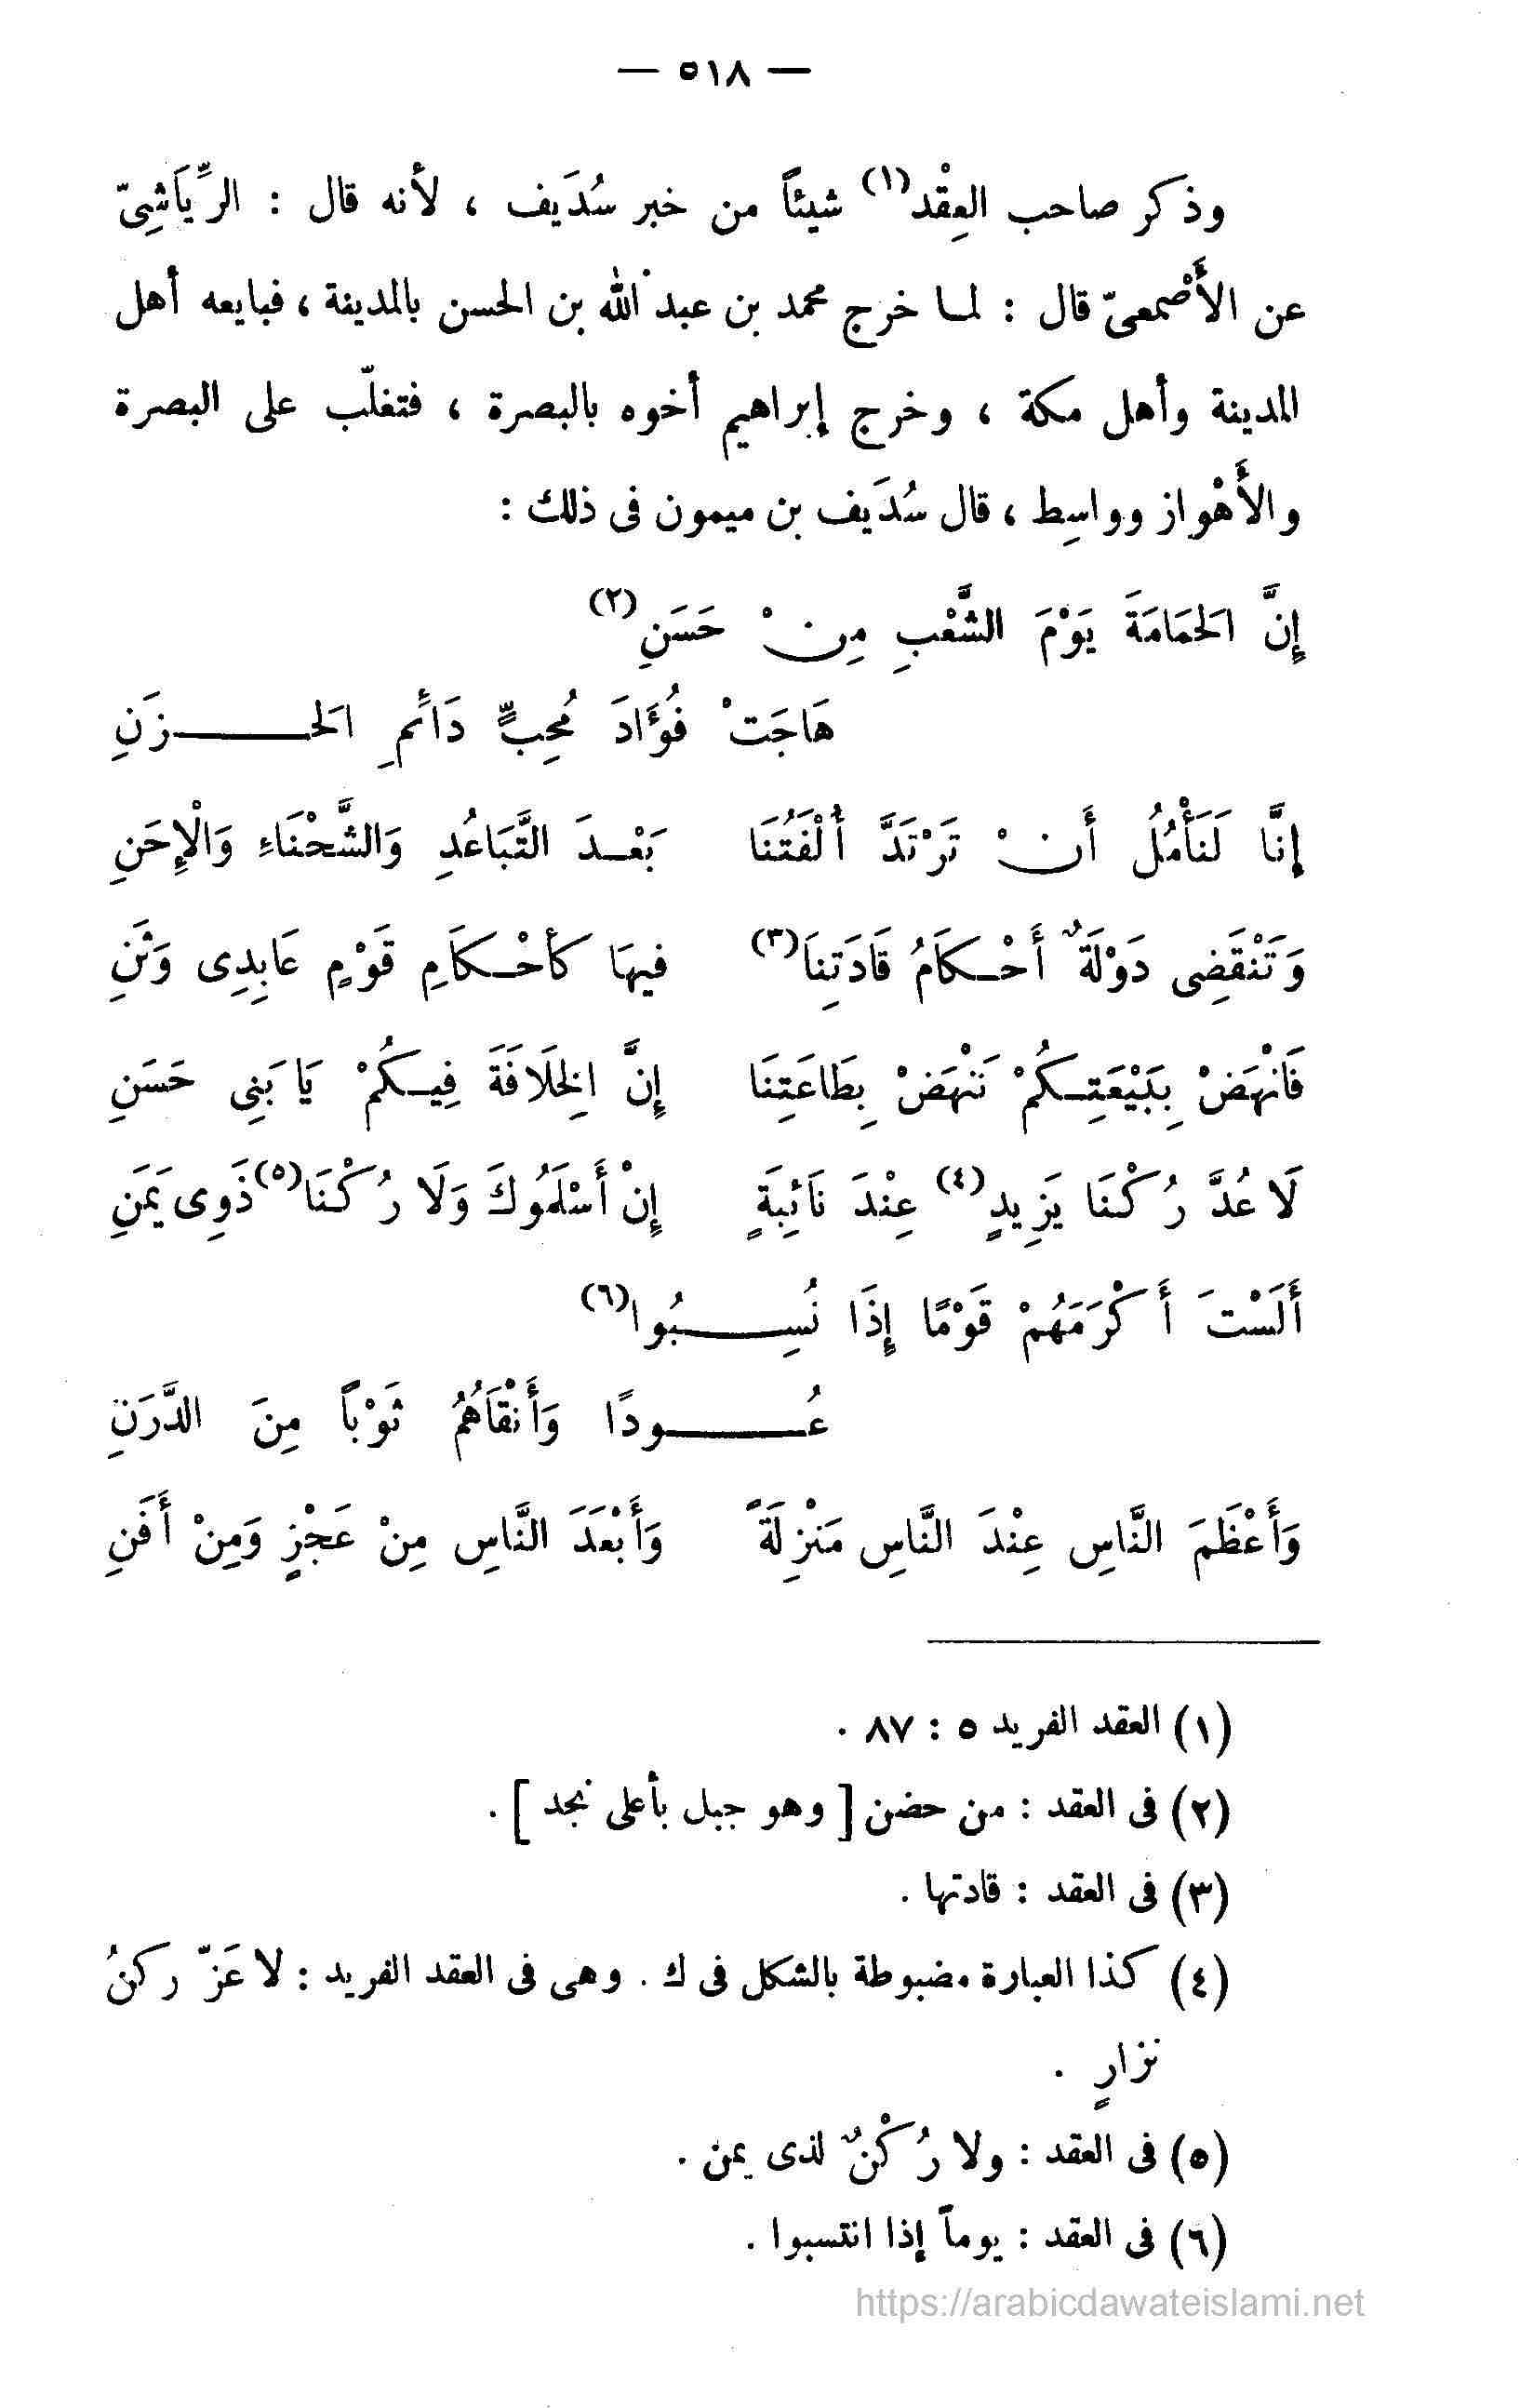 — ٥١٨ —
وذكر صاحب العِقْد(١) شيئاً من خبر سُدَيف ، لأنه قال : الرِّيَاشِىّ
عن الأَصْمعىّ قال : لما خرج محمد بن عبد الله بن الحسن بالمدينة ، فبايعه أهل
المدينة وأهل مكة ، وخرج إبراهيم أخوه بالبصرة ، فتغلّب على البصرة
والأَهْواز وواسِط ، قال سُدَيف بن ميمون فى ذلك :
إِنَّ الحَمَامَةَ يَوْمَ الشَّعْبِ مِنْ حَسَنِ(٢)
هَاجَتْ فُؤَادَ مُحِبٍّ دَائمِ الحَزَنِ
إِنَّا لَنَأْمُلُ أَنْ تَرْتَدَّ أُلْفَتُنَا بَعْدَ التَّبَاعُدِ وَالشَّحْنَاءِ وَالْإِحَنِ
وَتَنْقَضِى دَوْلَةٌ أَحْكَامُ قَادَتِنَا(٣) فيهَا كأَحْكَامِ قَوْمٍ عَابِدِى وَثَنِ
فَانْهَضْ بِبَيْعَتِكُمْ نَنْهَضْ بِطَاعَتِنَا إِنَّ الخِلَافَةَ فِيكُمْ يَا بَنِى حَسَنِ
لَا عُدَّ رُكْنَا يَزِيدٍ(٤) عِنْدَ نَائِبَةٍ إِنْ أَسْلَمُوكَ وَلَا رُكْنَا(٥) ذَوِى يَمَنِ
أَلَسْتَ أَكْرَمَهُمْ قَوْمًا إِذَا نُسِبُوا(٦)
عُودًا وَأَنْقَاهُمُ ثَوْباً مِنَ الدَّرَنِ
وَأَعْظَمَ النَّاسِ عِنْدَ النَّاسِ مَنْزِلَةً وَأَبْعَدَ النَّاسِ مِنْ عَجْزٍ وَمِنْ أَفَنِ
(١) العقد الفريد ٥ : ٨٧ .
(٢) فى العقد : من حضن [ وهو جبل بأعلى نجد ] .
(٣) فى العقد : قادتها .
(٤) كذا العبارة مضبوطة بالشكل فى ك . وهى فى العقد الفريد : لا عَزّ ركنُ
نزارٍ .
(٥) فى العقد : ولا رُكْنٌ لذى يمن .
(٦) فى العقد : يوماً إذا انتسبوا .
https://arabicdawateislami.net